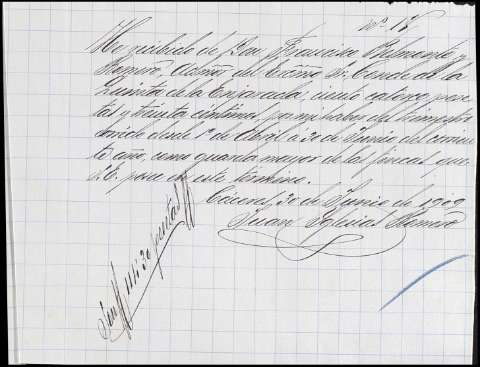 Nº 17
He recibido de Don Francisco Belmonte y
Romero, Admor. del Excmo. Sr. Conde de la
Quinta de la Enjarada, ciento catorce pese-
tas y treinta céntimos, por mi haber del trimestre
corrido desde 1º de Abril a 30 de Junio del corrien-
te año, como guarda mayor de las fincas que
S.E. posee en este término.
Cáceres, 30 de Junio de 1909
Juan Iglesias Romero
Son 114'30 pesetas